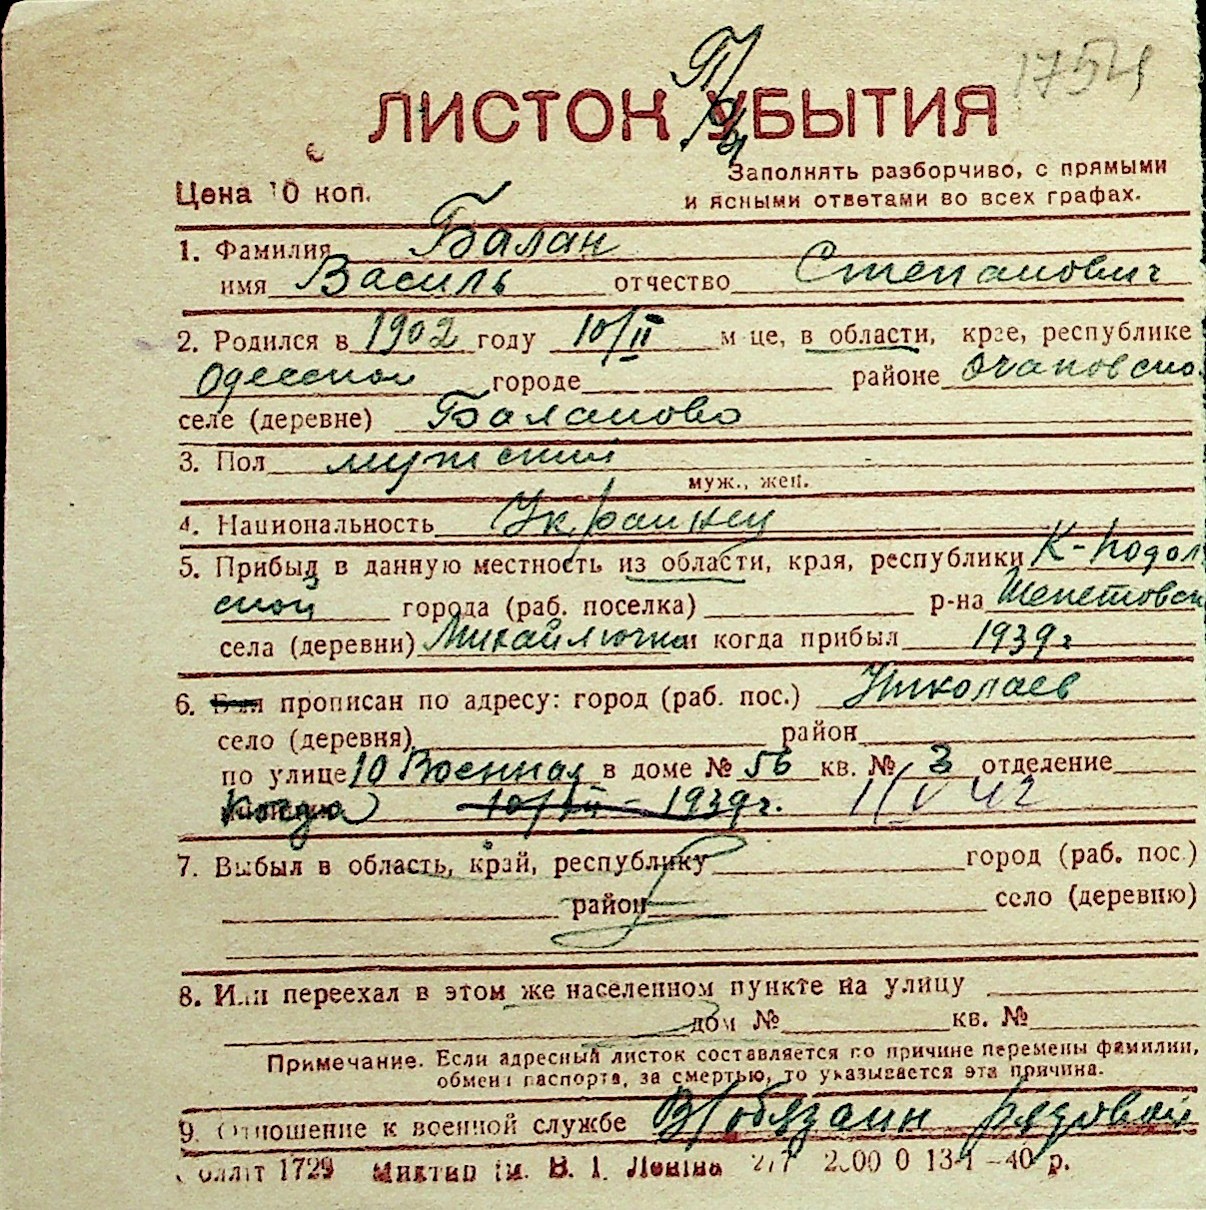 1754
ЛИСТОК УБЫТИЯ
Цена 10 коп.
Заполнять разборчиво, с прямыми
и ясными ответами во всех графах.
1. Фамилия Балан
имя Василь отчество Степанович
2. Родился в 1902 году 10/II м-це, в области, крае, республике
Одесской городе районе Очановско
селе (деревне) Баланово
3. Пол мужский
муж., жен.
4. Национальность Украинец
5. Прибыл в данную местность из области, края, республики К-Подол
ской города (раб. поселка) р-на Шепетовск
села (деревни) Михайлючки и когда прибыл 1939 г
6. Был прописан по адресу: город (раб. пос.) Николаев
село (деревня) район
по улице 10 Военная в доме № 56 кв. № 3 отделение
Когда 10/XII - 1939 г.
7. Выбыл в область, край, республику город (раб. пос.)
район село (деревню)
8. Или переехал в этом же населенном пункте на улицу
дом № кв. №
Примечание. Если адресный листок составляется по причине перемены фамилии,
обмена паспорта, за смертью, то указывается эта причина.
9. Отношение к военной службе В/обязанн рядовой
1729 В. І. Леніна 2000 0 13-1-40 р.